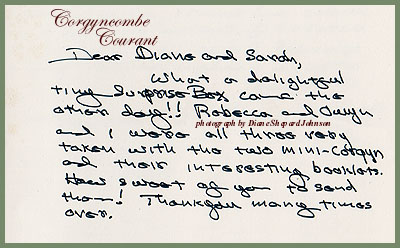 Corgyncombe
Courant
Dear Diane and Sarah,
What a delightful
tiny Surprise Box came the
other day!! Rebecca and Gwyn
photograph by Diane Shepard Johnson
and I were all three very
taken with the two mini-Corgyn
and their interesting booklets.
How sweet of you to send
them! Thank you many times
over.